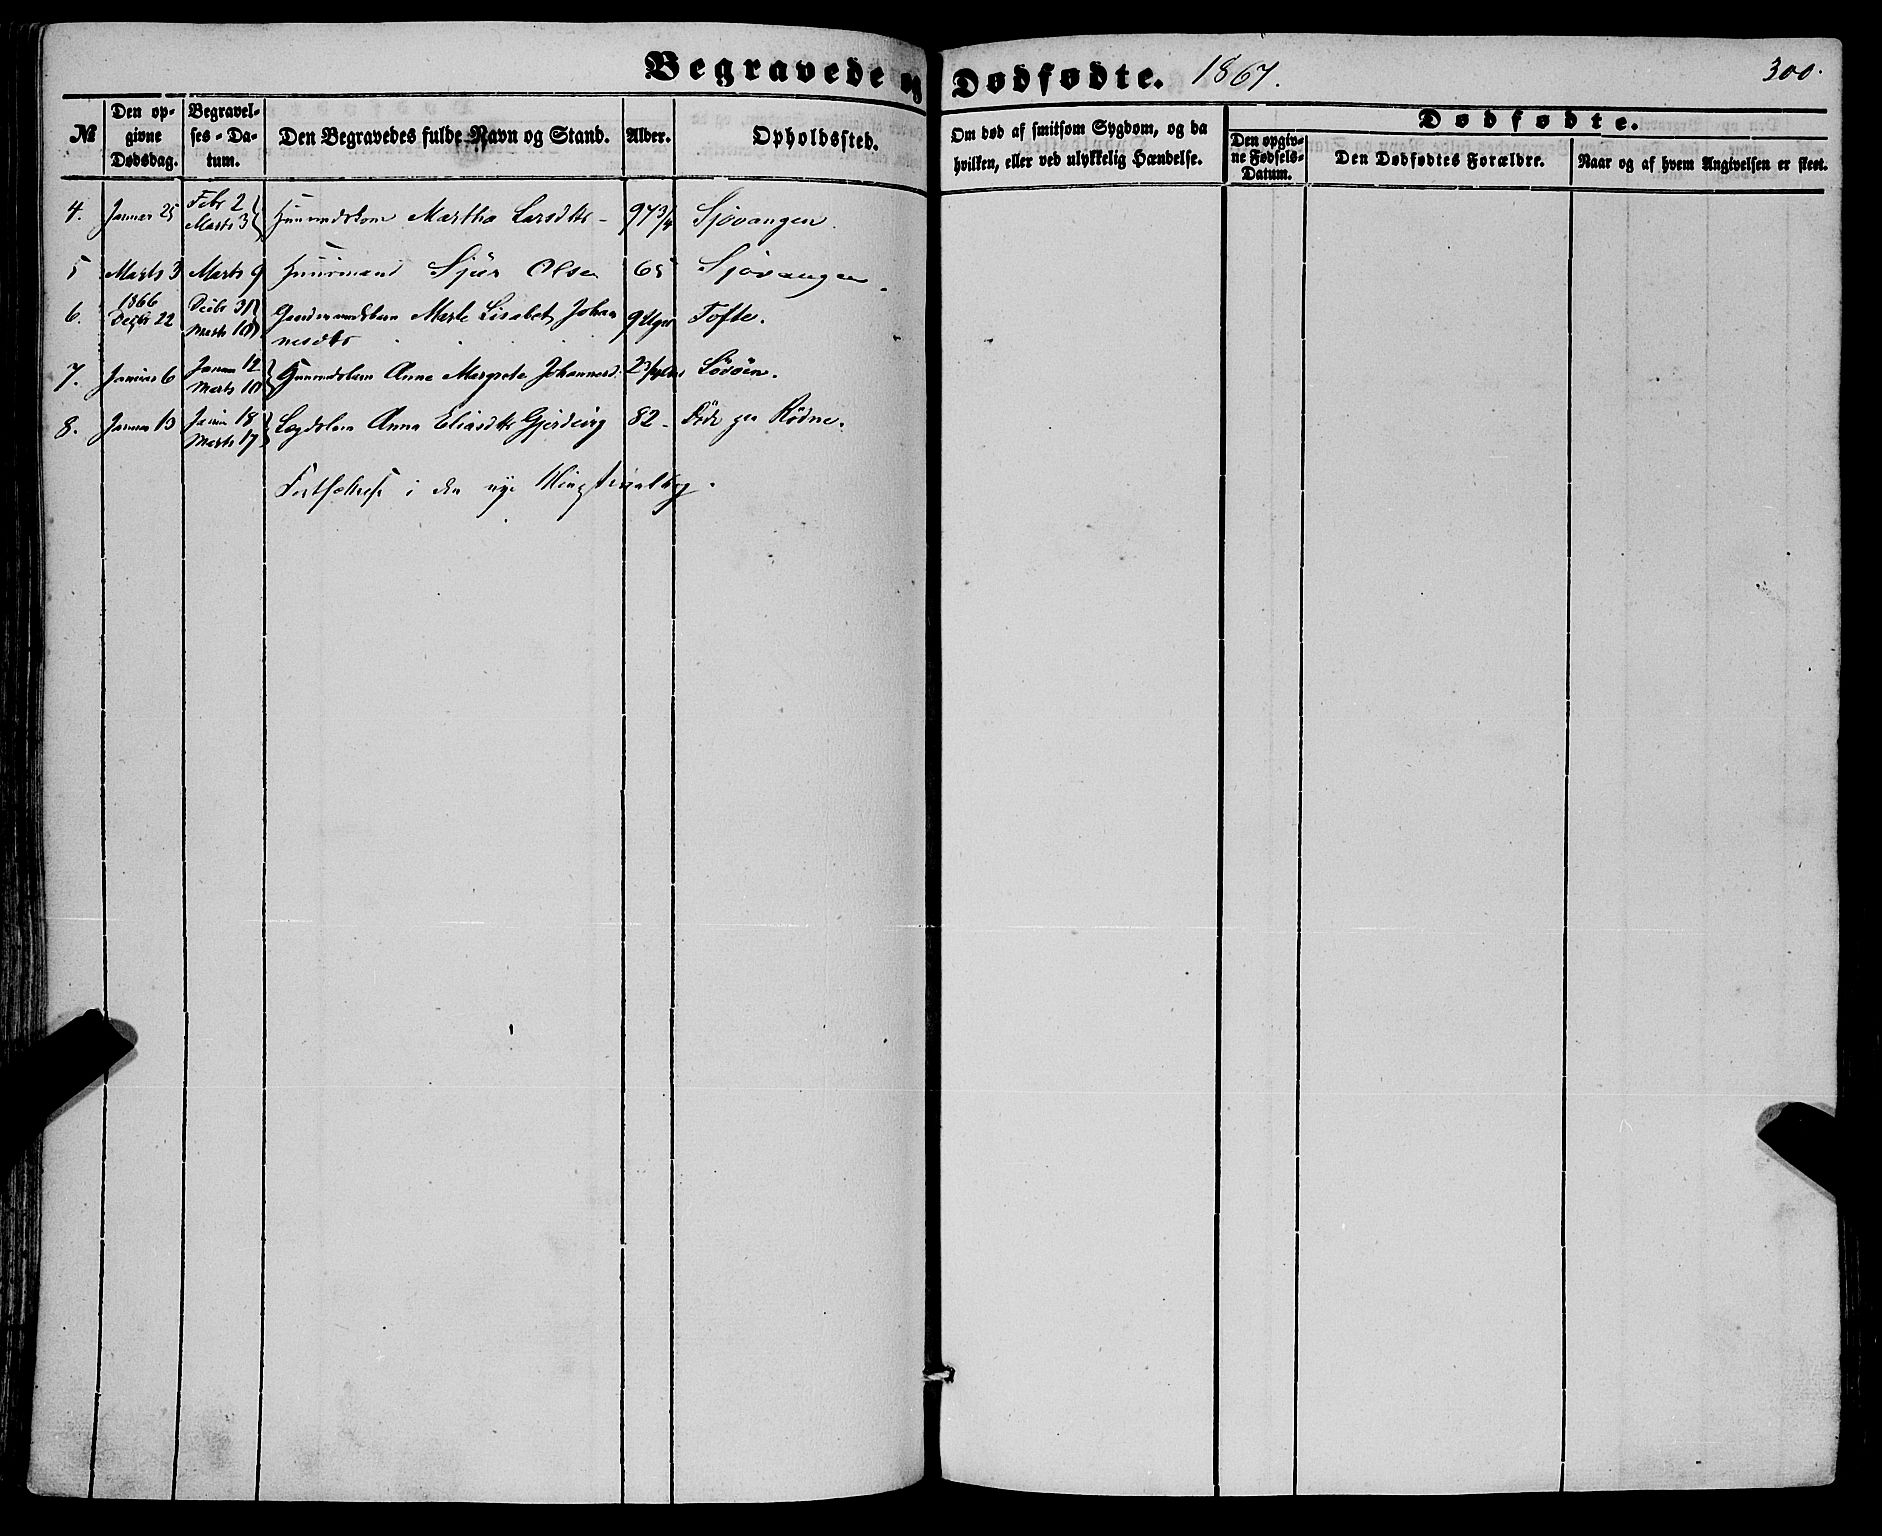 Begravede og Dødfødte. 1867. 300.
№ Den opgivne Dødsdag. Begravelses-Datum. Den Begravedes fulde Navn og Stand. Alder. Opholdssted. Om død af smitsom Sygdom, og da hvilken, eller ved ulykkelig Hændelse. Dødfødte. Den opgivne Fødsels-Datum. Den Dødfødtes Forældre. Naar og af hvem Angivelsen er skeet.
4. Januar 25 Febr 2 Marts 3 Martha Larsdtr 97 3/4 Sjovangen.
5 Marts 3 Marts 9 Huusmand Sjur Olsen 65 Sjovangen
6. 1866 Decbr 22 Decbr 31 Marts 10 Gaardmandsbarn Marte Lisabet Johan
nesdtr 9 Uger Tofte.
7. Januar 6 Januar 12 Marts 10 Anna Margrete Johannesd. Lovøen.
8. Januar 13 Januar 18 Marts 17 Anna Eliasdtr 82 paa Rødne.
Fortsættelse i den nye Ministerialbog.